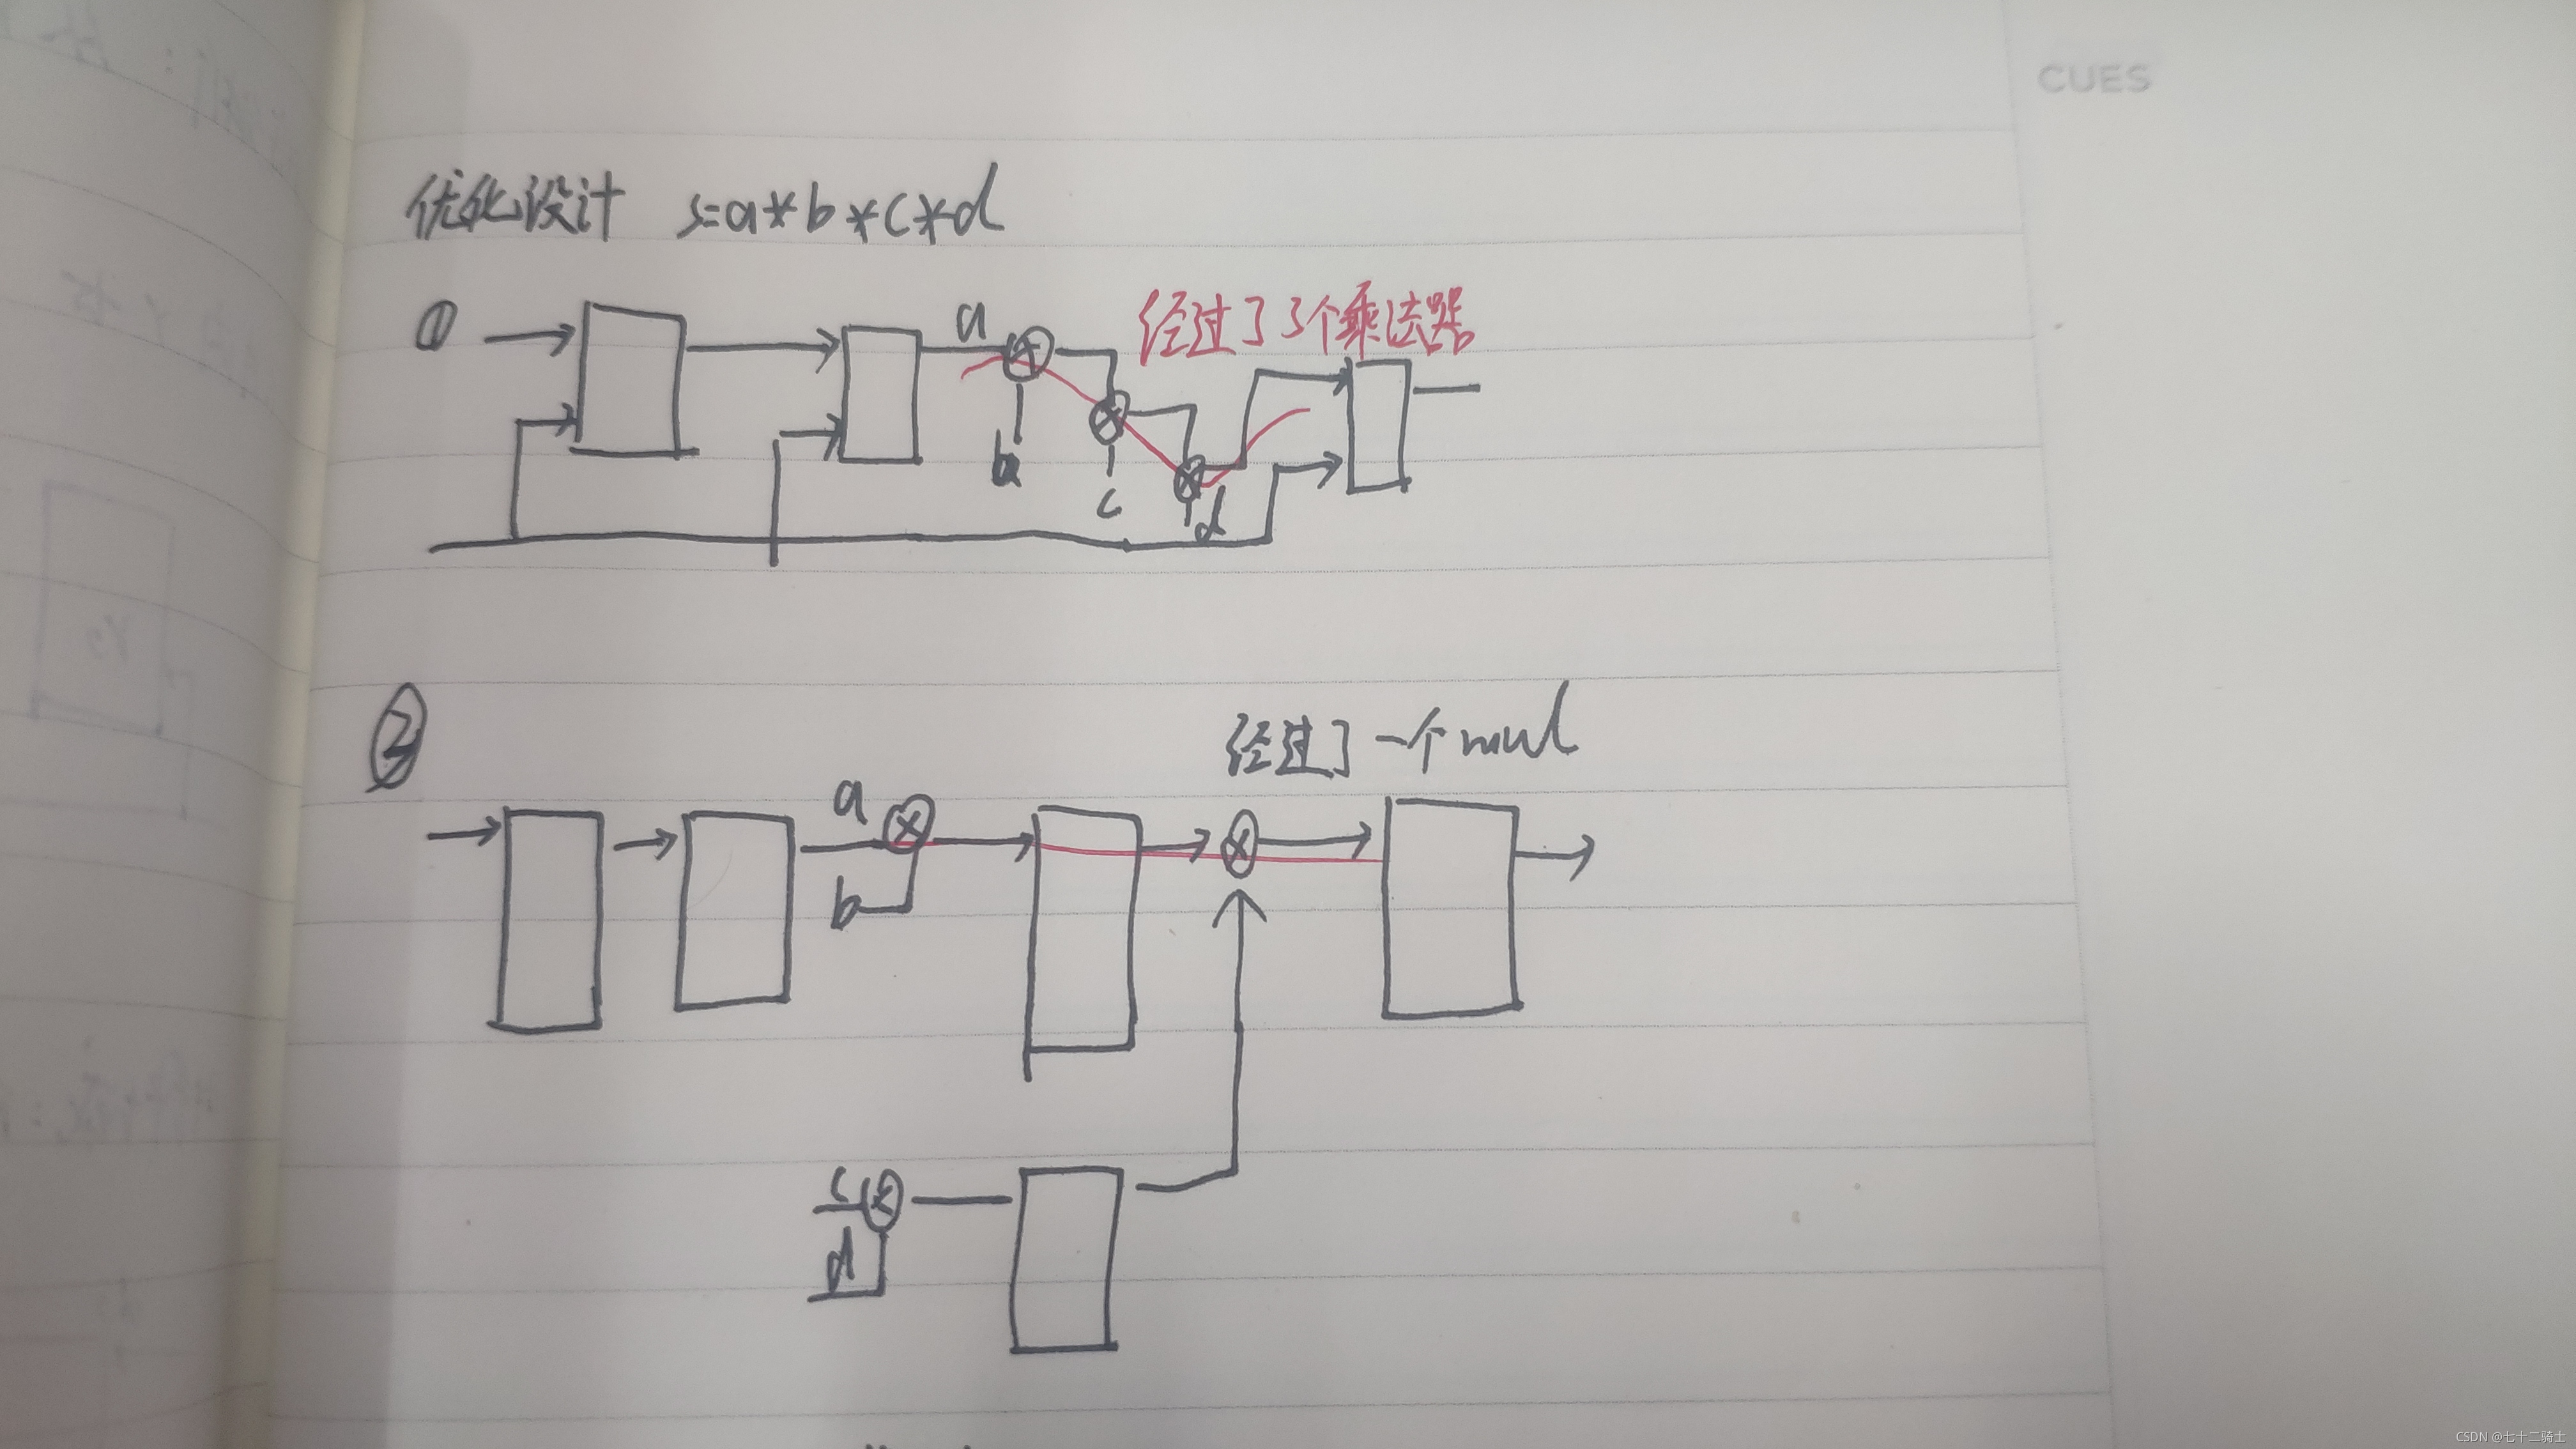 CUES
优化设计 s=a*b*c*d
①
经过了3个乘法器
a
b
c
d
②
经过了一个mul
a
b
c
d
CSDN @七十二骑士